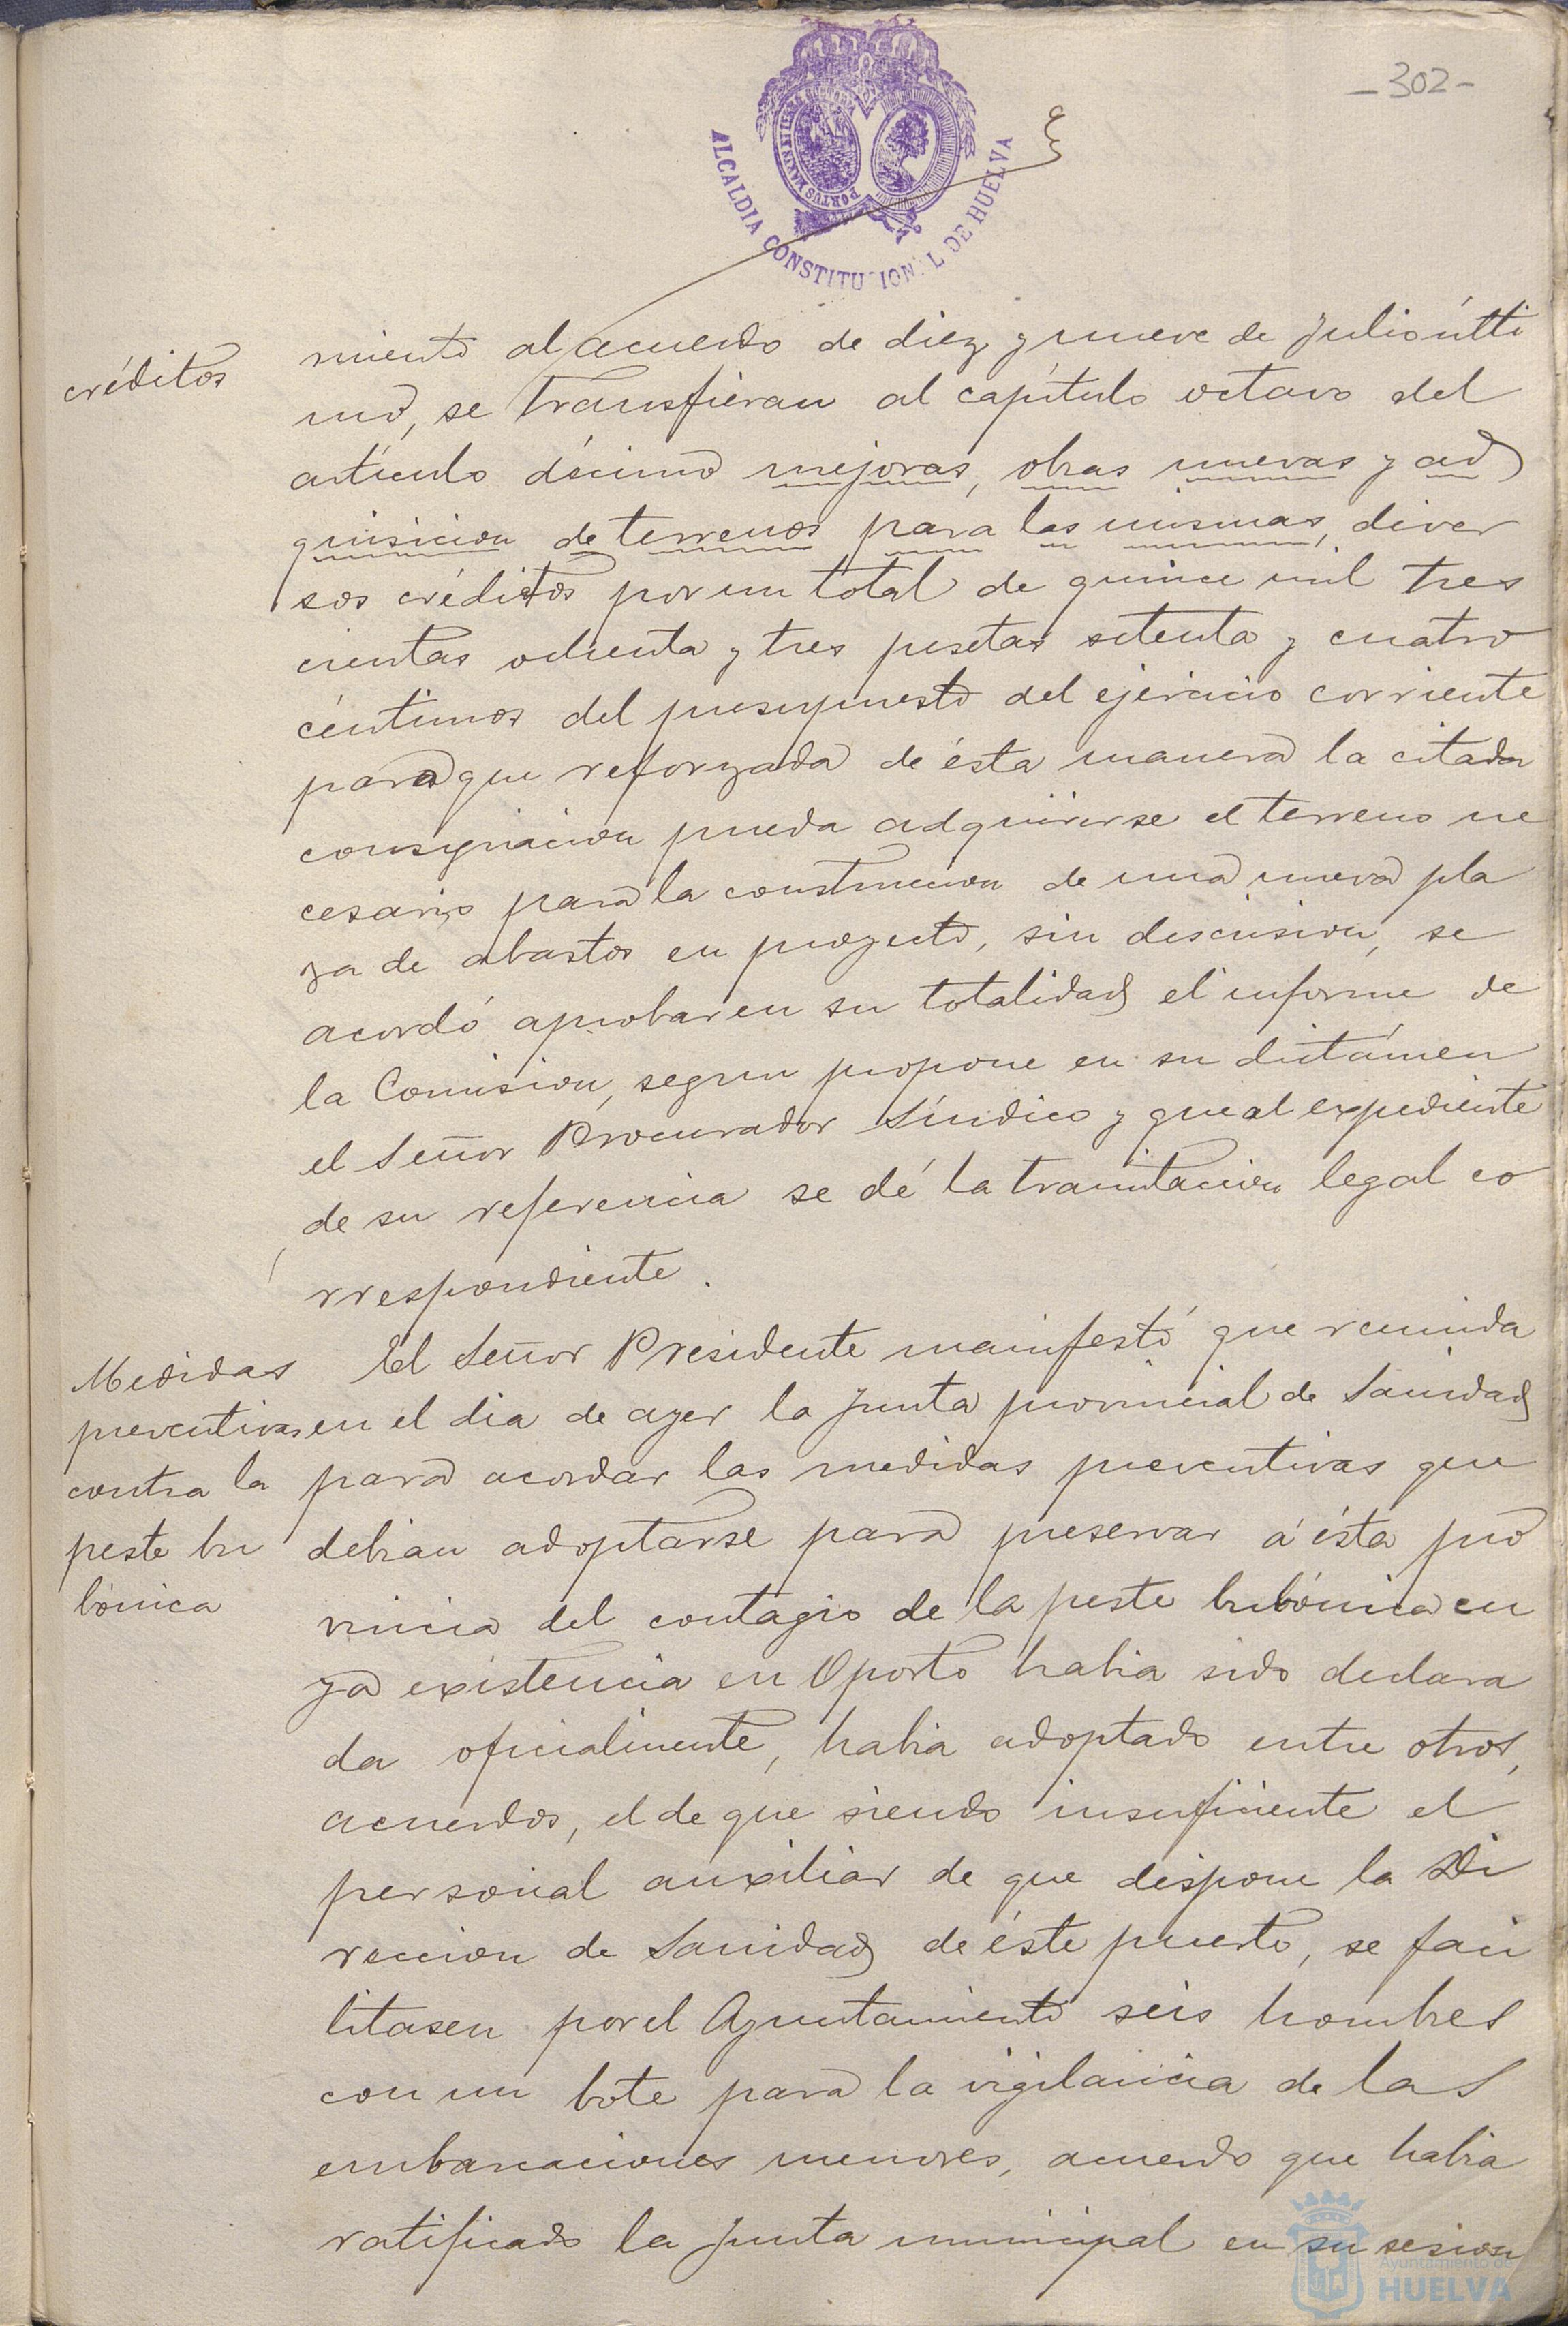 -302-
ALCALDIA CONSTITUCIONAL DE HUELVA
PORTUS MARIS
créditos
miento al acuerdo de diez y nueve de Julio últi
mo, se transfieran al capítulo octavo del
artículo décimo mejoras, obras nuevas y ad
quisicion de terrenos para las mismas, diver
sos créditos por un total de quince mil tres
cientas ochenta y tres pesetas setenta y cuatro
céntimos del presupuesto del ejercicio corriente
para que reforzada de ésta manera la citada
consignacion pueda adquirirse el terreno ne
cesario para la construccion de una nueva pla
za de abastos en proyecto, sin descusion, se
acordó aprobar en su totalidad el informe de
la Comision, segun propone en su dictámen
el Señor Procurador Síndico y que al expediente
de su referencia se dé la tramitacion legal co
rrespondiente.
Medidas
preventivas
contra la
peste bu
bónica
El Señor Presidente manifestó que reunida
en el dia de ayer la Junta provincial de Sanidad
para acordar las medidas preventivas que
debian adoptarse para preservar á ésta pro
vincia del contagio de la peste bubónica cu
ya existencia en Oporto habia sido declara
da oficialmente, habia adoptado entre otros,
acuerdos, el de que siendo insuficiente el
personal auxiliar de que dispone la Di
reccion de Sanidad de éste puerto, se faci
litasen por el Ayuntamiento seis hombres
con un bote para la vigilancia de las
embarcaciones menores, acuerdo que habia
ratificado la Junta municipal en su sesion
Ayuntamiento de
HUELVA